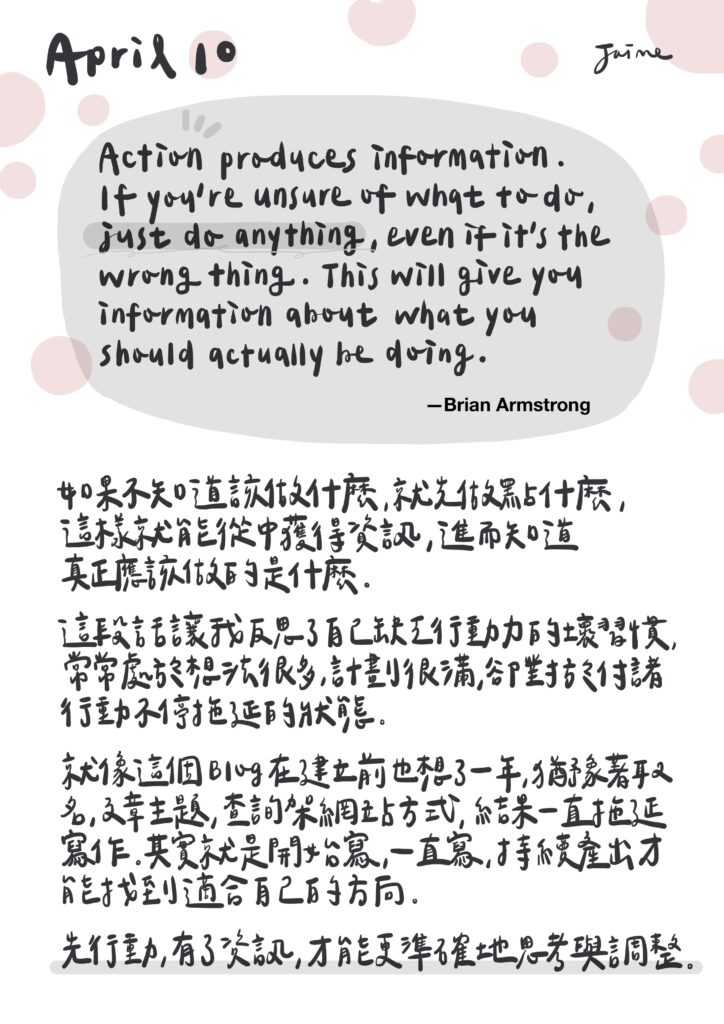 April 10
Jaime
Action produces information.
If you're unsure of what to do,
just do anything, even if it's the
wrong thing. This will give you
information about what you
should actually be doing.
—Brian Armstrong
如果不知道該做什麼,就先做點什麼,
這樣就能從中獲得資訊,進而知道
真正應該做的是什麼.
這段話讓我反思了自己缺乏行動力的壞習慣,
常常處於想法很多,計劃很滿,卻對於付諸
行動不停拖延的狀態。
就像這個Blog在建立前也想了一年,猶豫著取
名,文章主題,查詢架網站方式,結果一直拖延
寫作.其實就是開始寫,一直寫,持續產出才
能找到適合自己的方向.
先行動,有了資訊,才能更準確地思考與調整。